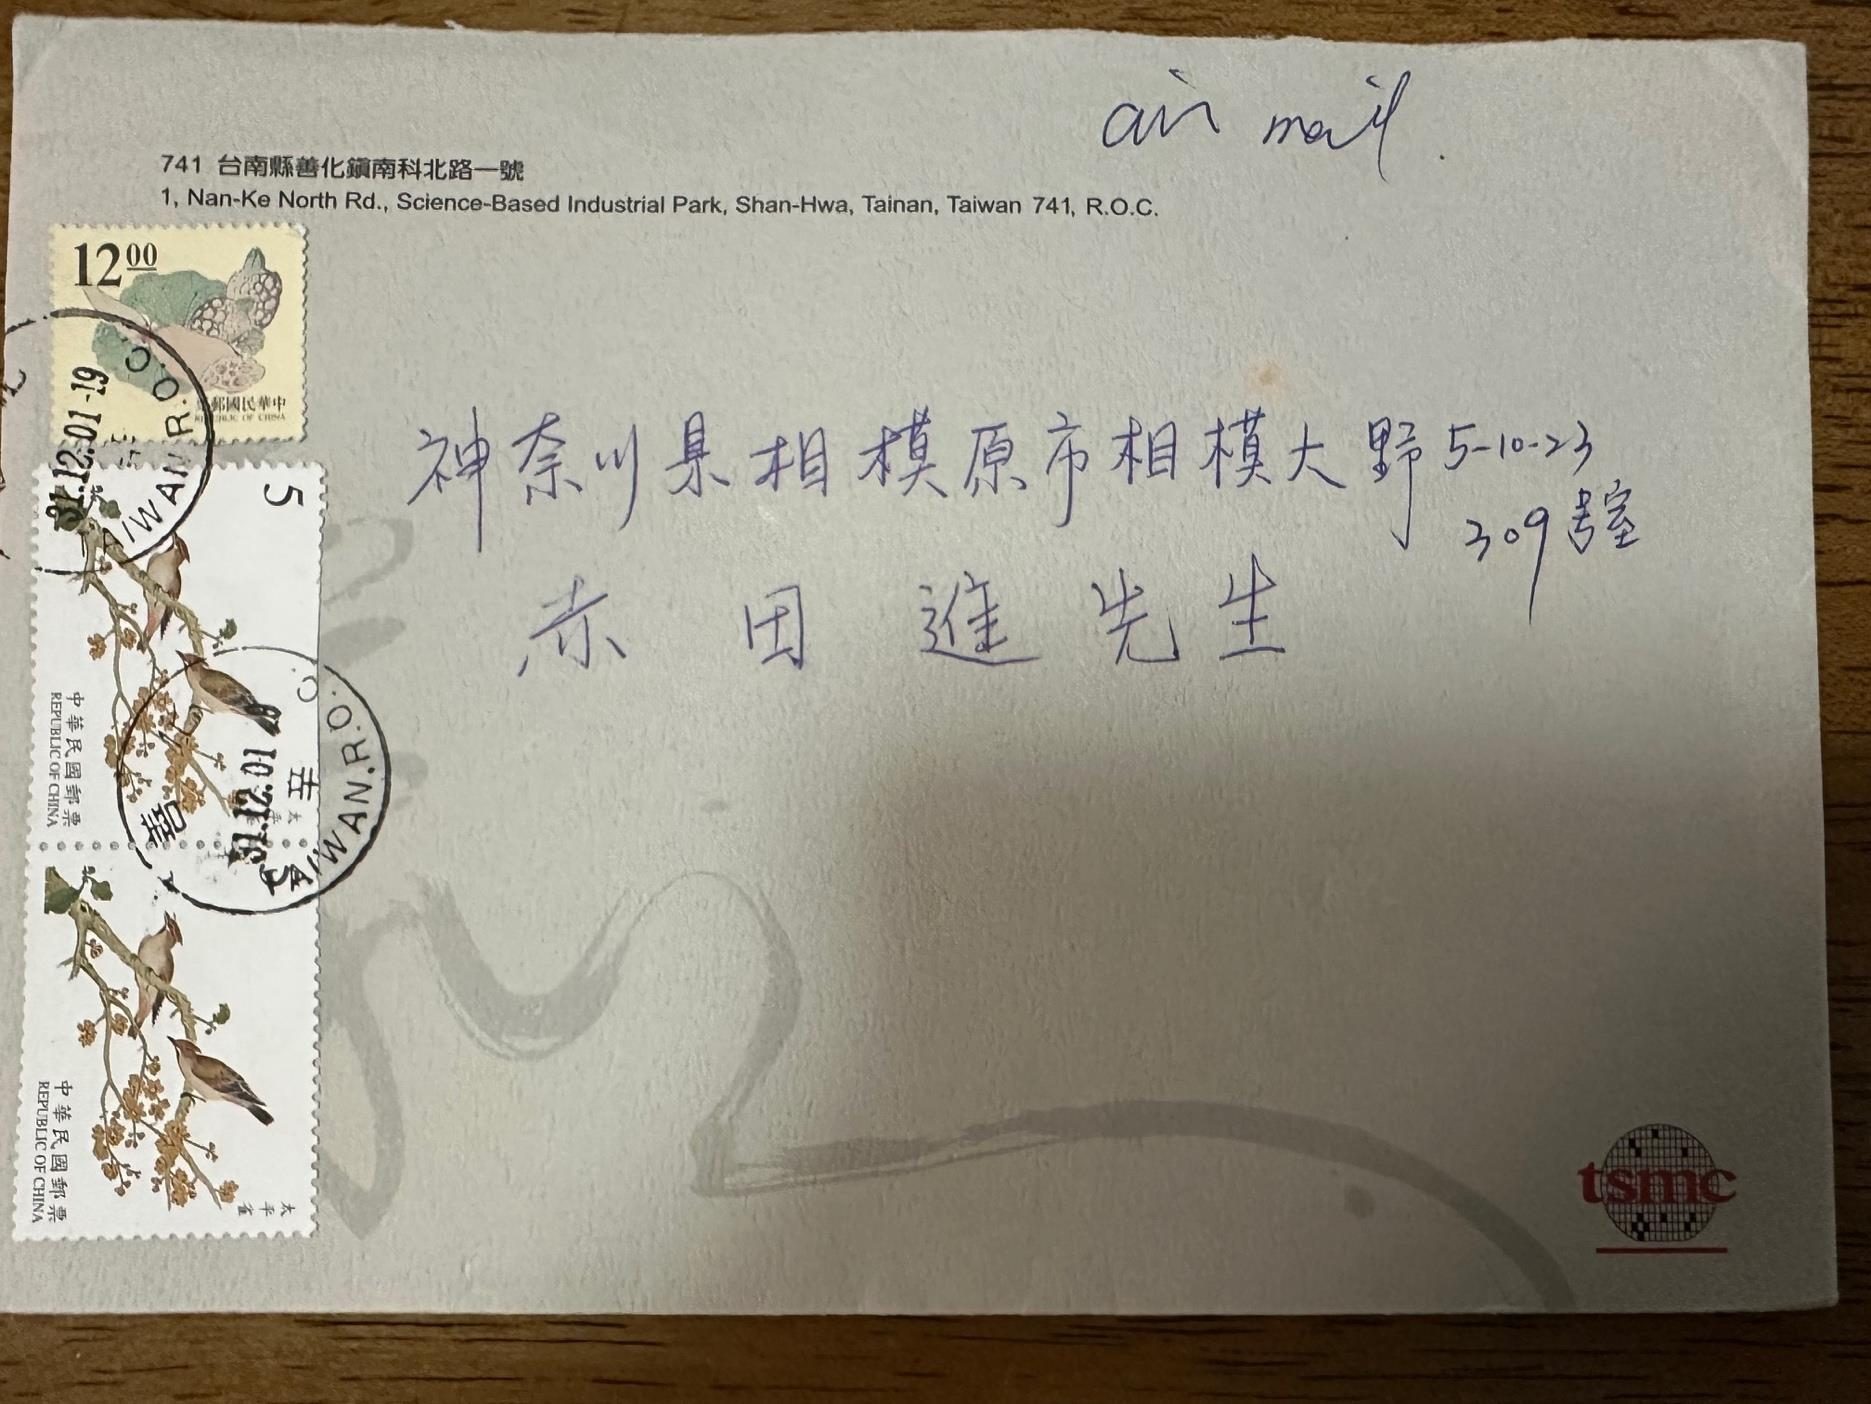 air mail
741 台南縣善化鎮南科北路一號
1, Nan-Ke North Rd., Science-Based Industrial Park, Shan-Hwa, Tainan, Taiwan 741, R.O.C.
12 00
中華民國郵票
REPUBLIC OF CHINA
31.12.01-19
TAIWAN.R.O.C.
神奈川県相模原市相模大野5-10-23
309号室
赤田進先生
5
中華民國郵票
REPUBLIC OF CHINA
太平雀
TAIWAN.R.O.C
善
中華民國郵票
REPUBLIC OF CHINA
太平雀
tsmc